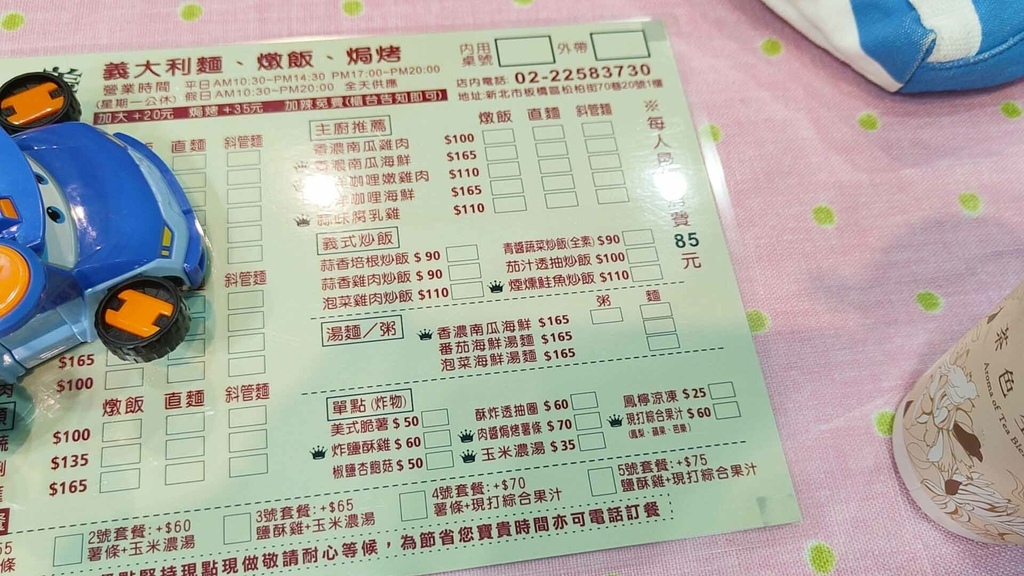 義大利麵、燉飯、焗烤
內用桌號 外帶
營業時間 平日AM10:30~PM14:30 PM17:00~PM20:00
(星期一公休) 假日AM10:30~PM20:00 全天供應
店內電話 02-22583730
地址:新北市板橋區松柏街70巷20號1樓
加大+20元 焗烤+35元 加辣免費(櫃台告知即可)
直麵 斜管麵
主廚推薦 燉飯 直麵 斜管麵
香濃南瓜雞肉 $100
香濃南瓜海鮮 $165
咖哩嫩雞肉 $110
咖哩海鮮 $165
腐乳雞 $110
※每人 費85元
義式炒飯
蒜香培根炒飯 $90
蒜香雞肉炒飯 $90
泡菜雞肉炒飯 $110
青醬蔬菜炒飯(全素) $90
茄汁透抽炒飯 $100
煙燻鮭魚炒飯 $110
斜管麵
湯麵/粥 粥 麵
香濃南瓜海鮮 $165
番茄海鮮湯麵 $165
泡菜海鮮湯麵 $165
$165
$100
燉飯 直麵 斜管麵
$100
$135
$165
單點(炸物)
美式脆薯 $50
炸鹽酥雞 $60
椒鹽杏鮑菇 $50
酥炸透抽圈 $60
肉醬焗烤薯條 $70
玉米濃湯 $35
鳳檸涼凍 $25
現打綜合果汁 $60
(鳳梨、蘋果、芭樂)
2號套餐:+$60
薯條+玉米濃湯
3號套餐:+$65
鹽酥雞+玉米濃湯
4號套餐:+$70
薯條+現打綜合果汁
5號套餐:+$75
鹽酥雞+現打綜合果汁
堅持現點現做敬請耐心等候，為節省您寶貴時間亦可電話訂餐
茶色
Aroma of Tea